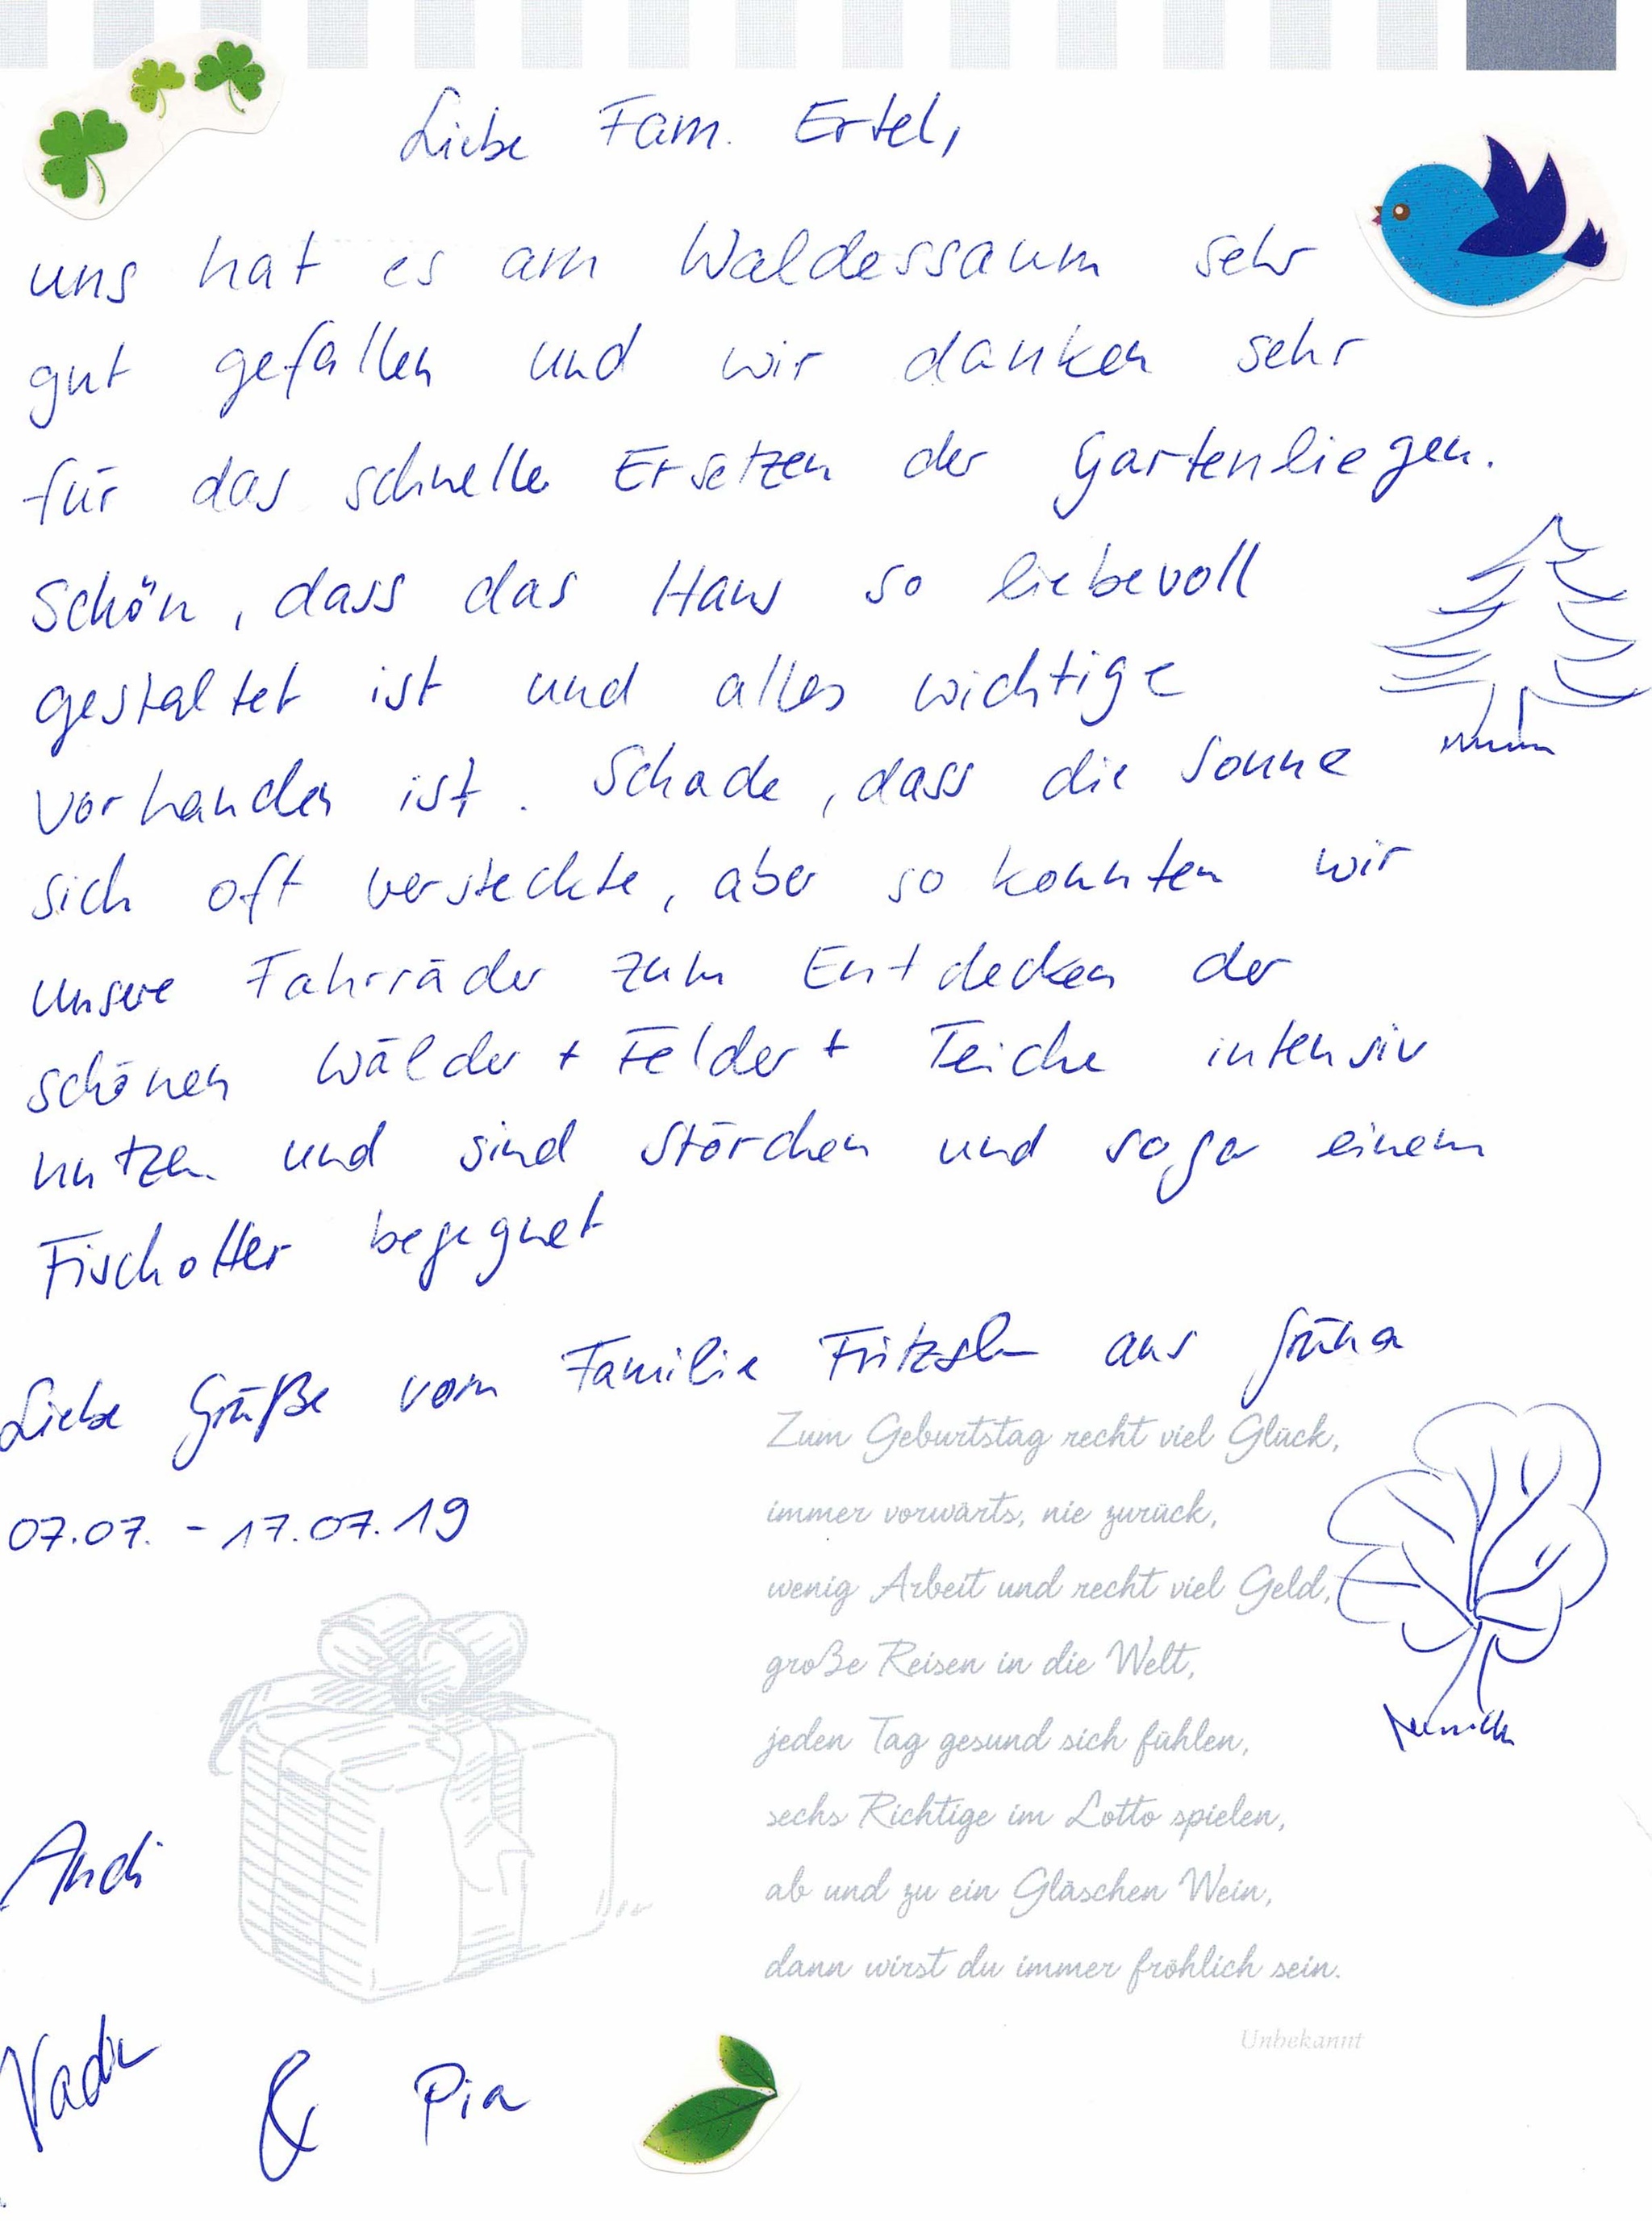 Liebe Fam. Ertel,
uns hat es am Waldessaum sehr
gut gefallen und wir danken sehr
für das schnelle Ersetzen der Gartenliegen.
Schön, dass das Haus so liebevoll
gestaltet ist und alles wichtige
vorhanden ist. Schade, dass die Sonne
sich oft versteckte, aber so konnten wir
unsere Fahrräder zum Entdecken der
schönen Wälder + Felder + Teiche intensiv
nutzen und sind Störchen und sogar einem
Fischotter begegnet
Liebe Grüße von Familie aus Grüna
07.07. - 17.07.19
Zum Geburtstag recht viel Glück,
immer vorwärts, nie zurück,
wenig Arbeit und recht viel Geld,
große Reisen in die Welt,
jeden Tag gesund sich fühlen,
sechs Richtige im Lotto spielen,
ab und zu ein Gläschen Wein,
dann wirst du immer fröhlich sein.
Unbekannt
Andi
& Pia